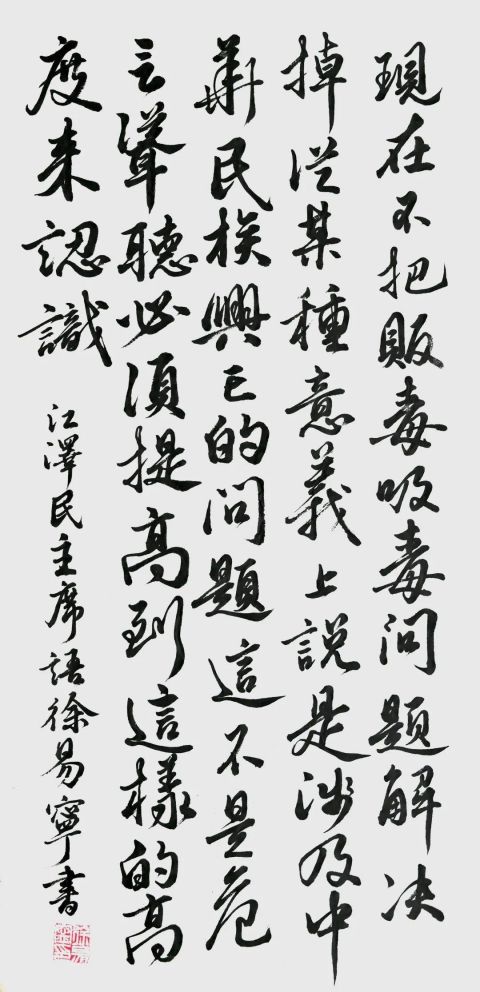 現在不把販毒吸毒問題解决
掉從某種意義上説是涉及中
華民族興亡的問題這不是危
言聳聽必須提高到這樣的高
度来認識
江澤民主席語徐易寧書